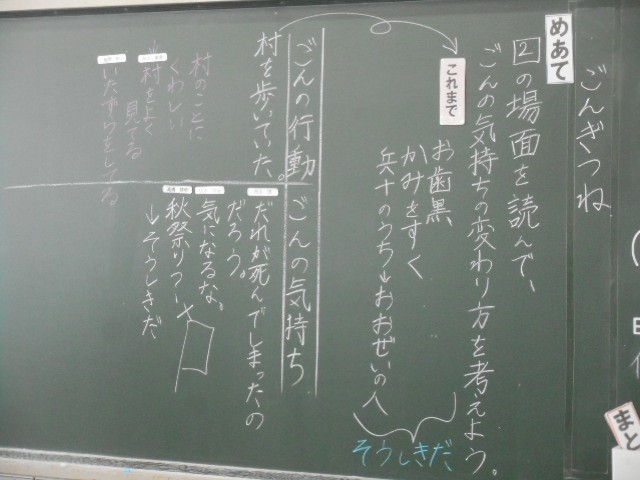 ごんぎつね
めあて
2の場面を読んで、
ごんの気持ちの変わり方を考えよう。
これまで
お歯黒
かみをすく
兵十のうち→おおぜいの人
そうしきだ
ごんの行動
村を歩いていた。
村のことに
くわしい
→村をよく
見てる
いたずらをしてる
ごんの気持ち
だれが死んでしまったの
だろう。
気になるな。
秋祭り
→そうしきだ
まと